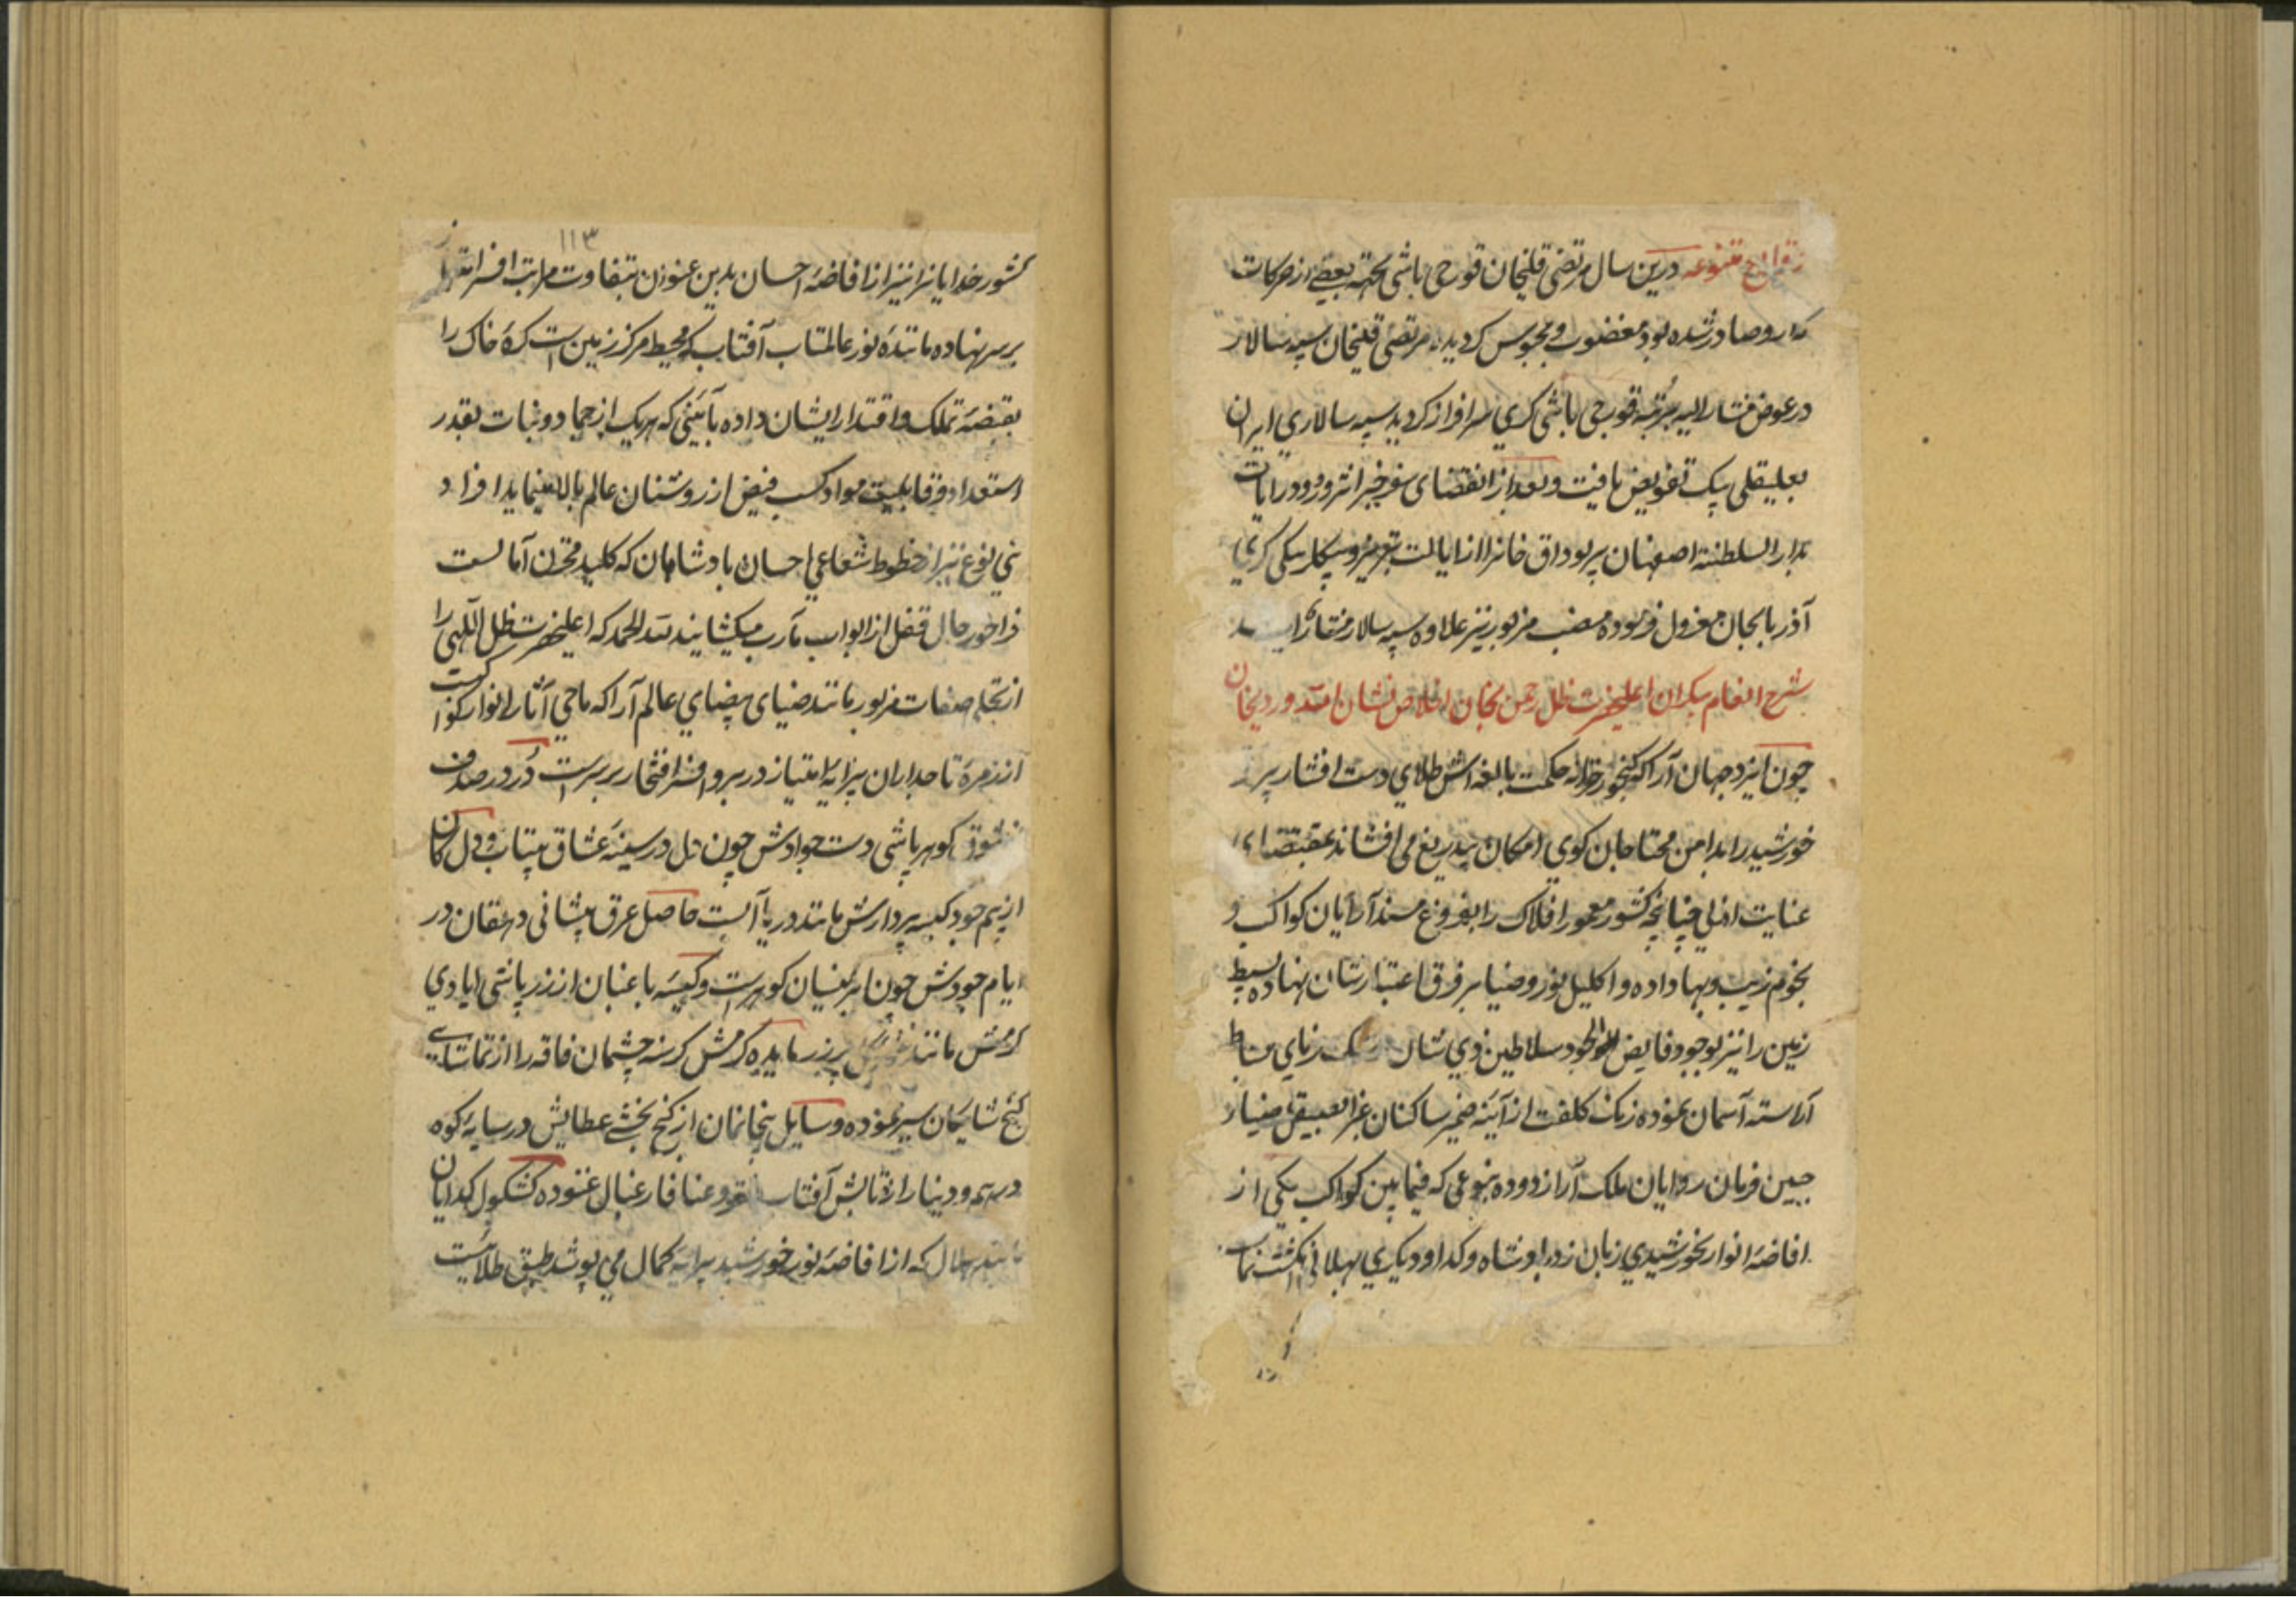 وقایع متنوعه درین سال مرتضی قلیخان قورچی باشی بجهة بعضی از حرکات
که ازو صادر شده بود مغضوب و محبوس کردیده مرتضی قلیخان سپه سالار
در عوض مشار الیه برتبه قورچی باشی کری سرافراز کردید سپه سالاری ایران
بعلیقلی بیک تفویض یافت و بعد از انقضای سفر خیر اثر و ورود رایات
بدار السلطنه اصفهان پیر بوداق خانرا از ایالت تبریز و بیکلربیکی کری
آذربایجان معزول فرموده منصب مزبور نیز علاوه سپه سالار
شرح انعام بیکران اعلیحضرت ظل رحمن بخان اخلاص نشان الله ویردیخان
چون ایزد جهان آرا که کنجور خزانه حکمت بالغه اش طلای دست افشار
خورشید را بدامن محتاجان کوی امکان بیدریغ می افشاند بمقتضای
عنایت ازلی چنانچه کشور معمور افلاک را بفروغ مسند آرایان کواکب و
نجوم زیب و بها داده و اکلیل نور و ضیا بر فرق اعتبارشان نهاده بسیط
زمین را نیز بوجود فایض الجود سلاطین ذی شان رشک بساط
آراسته آسمان نموده زنک کلفت از آینه ضمیر ساکنان غبرا بصیقل ضیاء
جبین فرمان روایان ملک آرا زدوده بنوعی که فیما بین کواکب یکی از
افاضه انوار بخورشیدی زبان زد پادشاه و کدا و دیکری بهلالی انکشت نماست
۱۱۳
کشور خدایانرا نیز از افاضه احسان بدین عنوان بتفاوت مراتب افسر
بر سر نهاده مانند نور عالمتاب آفتاب که محیط مرکز زمین است کره خاک را
بقبضه تملک و اقتدار ایشان داده بآئینی که هر یک از جماد و نبات بقدر
استعداد و قابلیت مواد کسب فیض از روشنان عالم بالا مینماید افراد
بنی نوع نیز از خطوط شعاعی احسان پادشاهان که کلید مخزن آمالست
فراخور حال قفل از ابواب مآرب میکشایند لله الحمد که اعلیحضرت ظل اللهی را
از تجلی صفات مزبور مانند ضیای بیضای عالم آرا که ماحی آثار انوار کواکبست
از زمره تاجداران پیرایه امتیاز در بر و افسر افتخار بر سرست در در صدف
از شوق کوهر پاشی دست جوادش چون دل در سینه عشاق بیتاب و دل کان
از بیم جود کیسه پردازش مانند دریا آبست حاصل عرق پیشانی دهقان در
ایام جودش چون ابر نیسان کوهرست و کیسه باغبان از زر پاشی ایادی
کرمش مانند پرزر مایده کرمش کرسنه چشمان فاقه را از تماشای
کنج شایکان سیر نموده و سایل بیخانمان از کنج بخشی عطایش در سایه کوه
درهم و دینار از تابش آفتاب فقر و عنا فارغبال غنوده کشکول کدایان
مانند هلال که از افاضه نور خورشید پیرایه کمال می پوشد طبق طلائیست